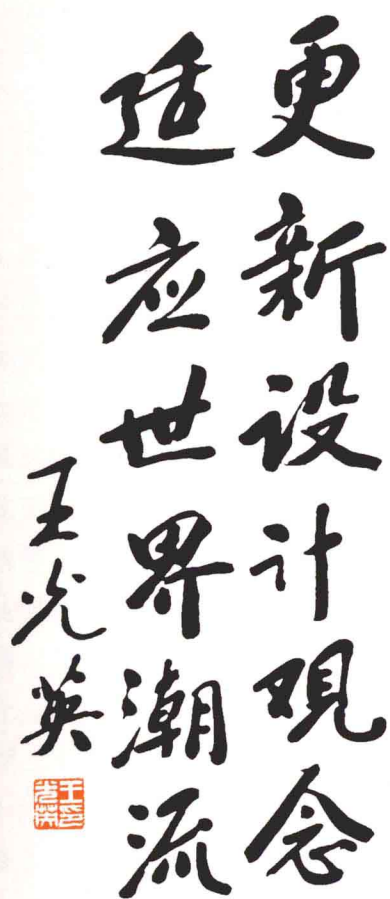 更新设计观念
适应世界潮流
王光英
王光英印